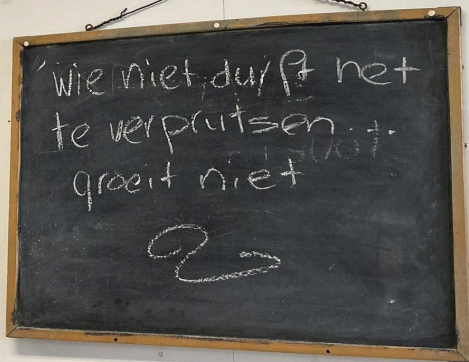 'wie niet durft het
te verprutsen
groeit niet